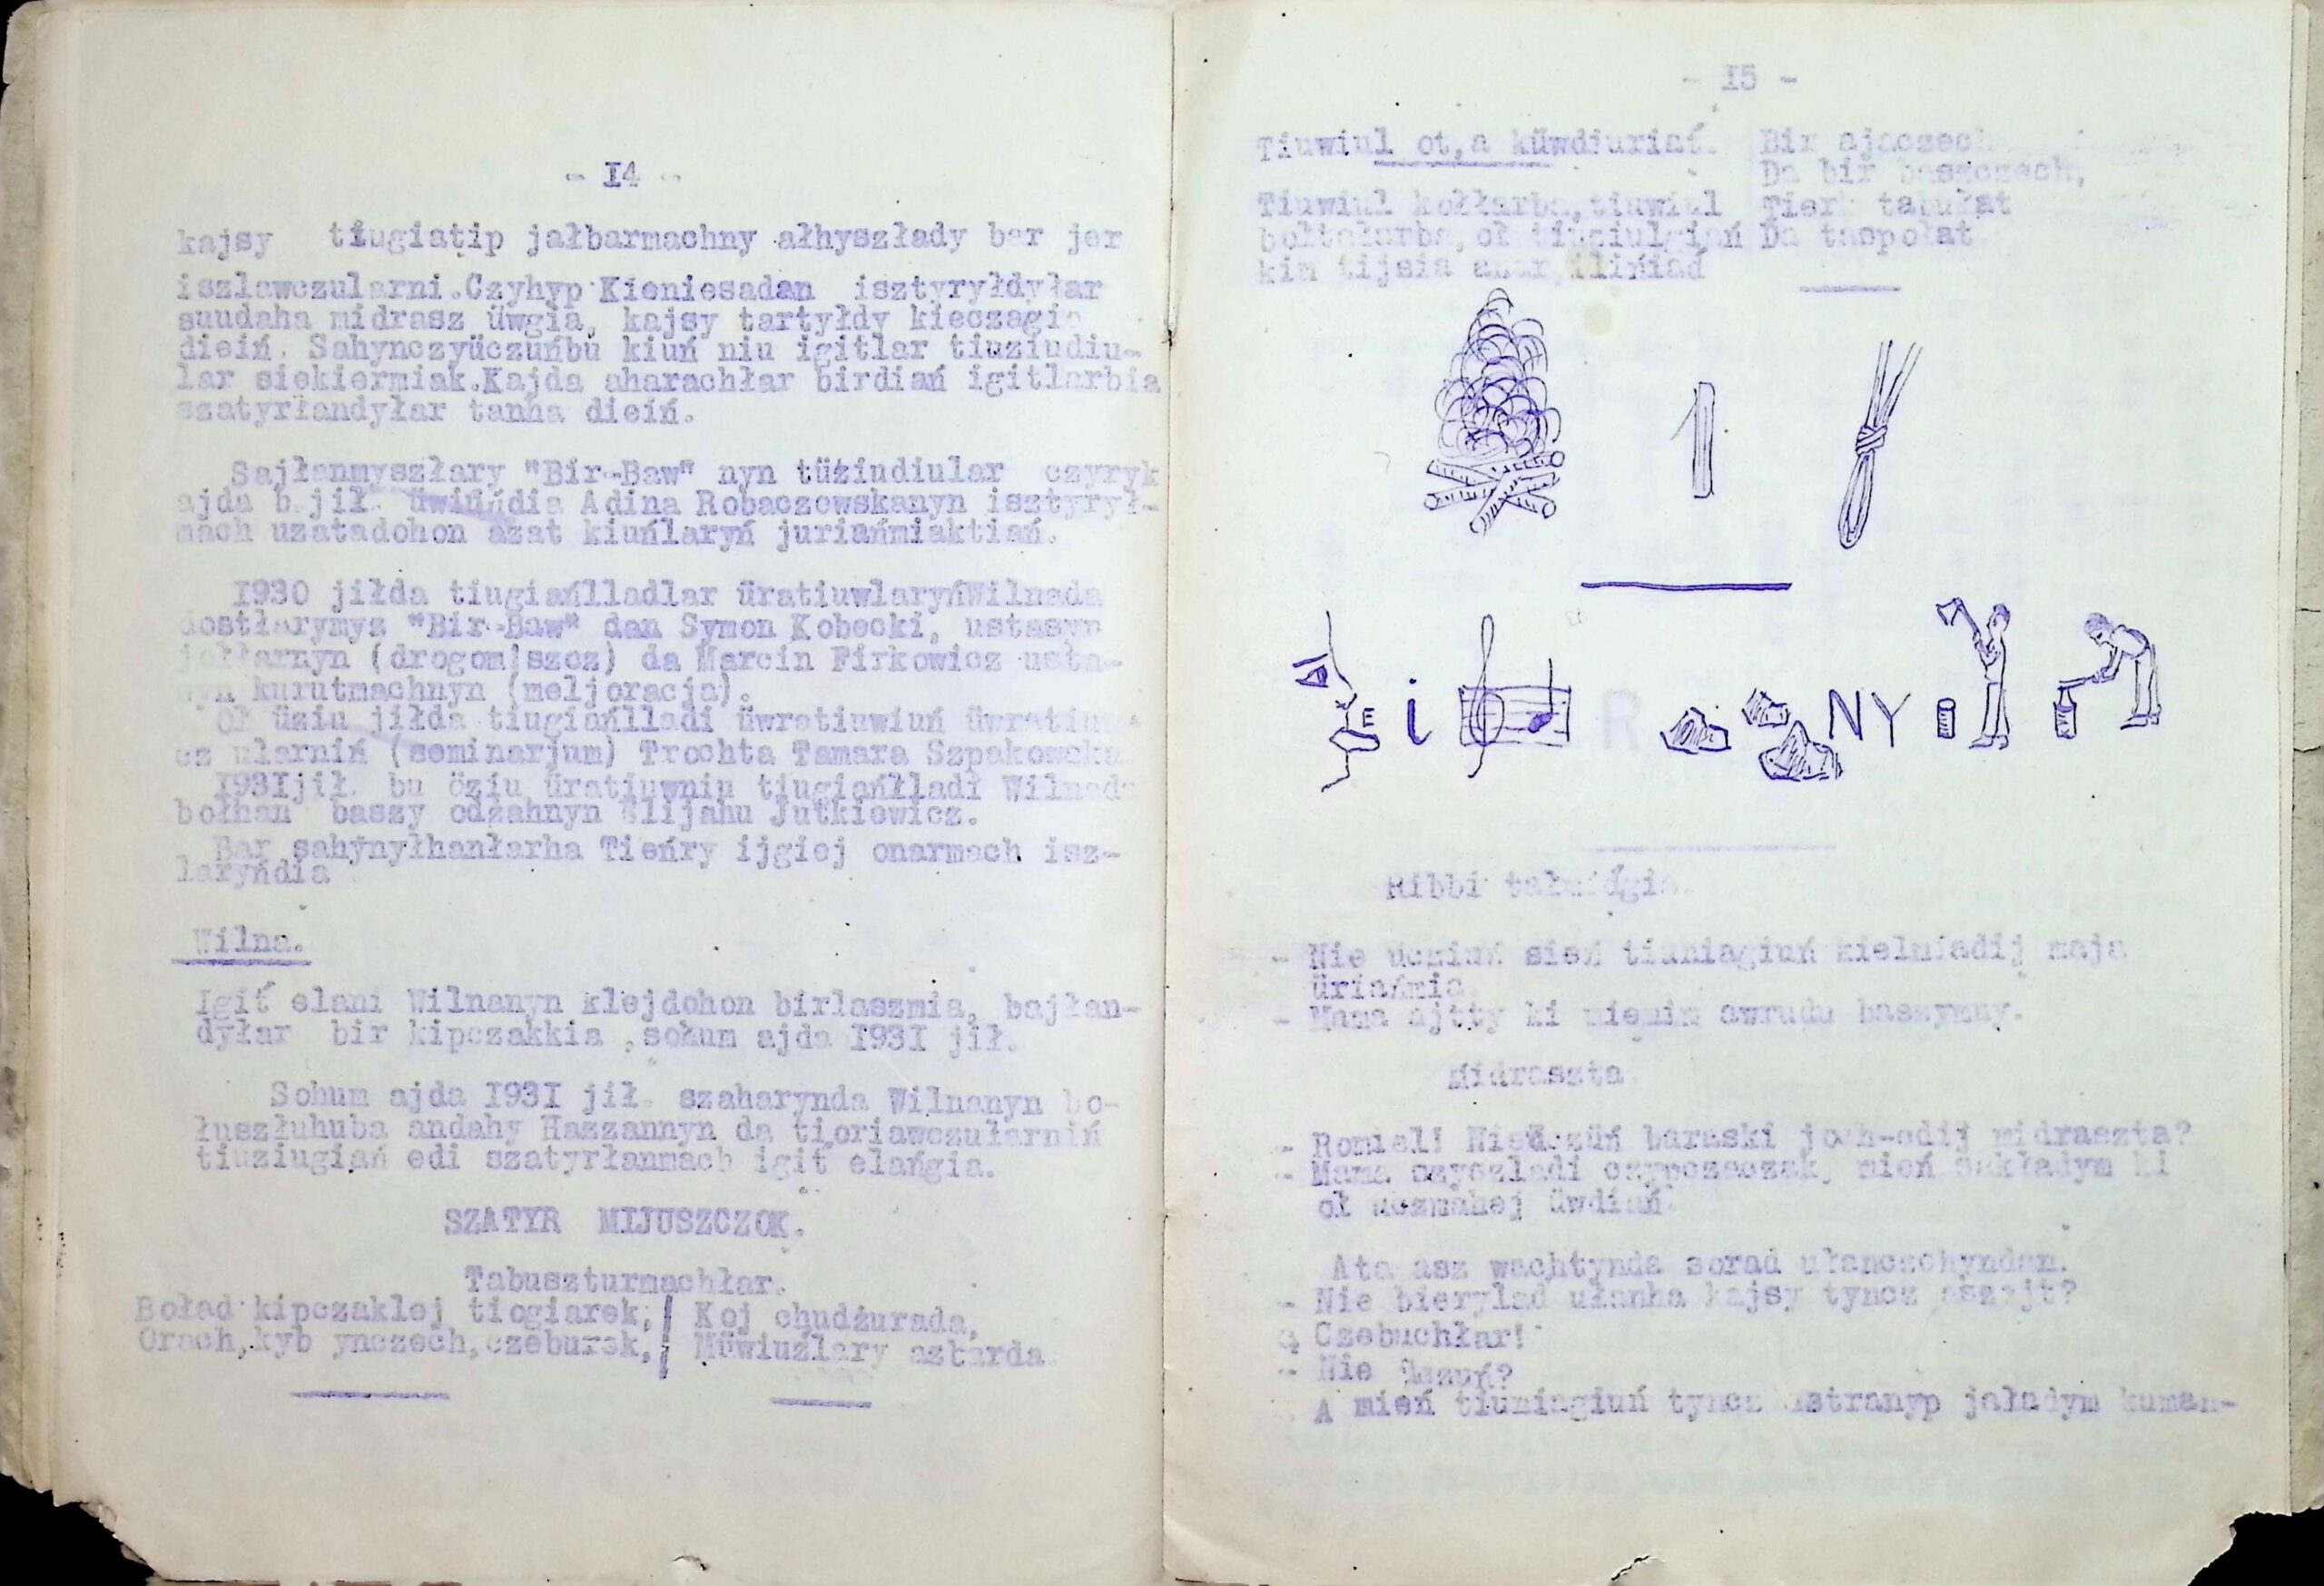 - 14 -
kajsy tiugiatip jałbarmachny ałhyszłady bar jer
iszlawczularni.Czyhyp Kieniesadan isztyryłdyłar
suudaha midrasz üwgia, kajsy tartyłdy kieczegia
dieiń. Sahynczyüczuńbu kiuń niu igitlar tiuziudiu-
lar siekiermiak.Kajda aharachłar birdiań igitlarbia
szatyrłandyłar tanha dieiń.
Sajłanmyszłary "Bir-Baw" nyn tüźiudiular czyryk
ajda b.jił. üwińdia Adina Robaczewskanyn isztyrył-
mach uzatadohon azat kiuńlaryń juriańmiaktiań.
1930 jiłda tiugiańlladlar üratiuwlaryńWilnada
dostłarymyz "Bir-Baw" dan Symon Kobecki, ustasyn
jołłarnyn (drogomiszcz) da Marcin Firkowicz usta-
syn kurutmachnyn (meljoracja).
Oł üziu jiłda tiugiańlladi üwratiuwiuń üwratiuw-
cz ularniń (seminarjum) Trochta Tamara Szpakowska.
1931jił. bu öziu üratiuwniu tiugiańłladi Wilnada
bołhan baszy odżahnyn Elijahu Jutkiewicz.
Bar sahynyłhanłarha Tieńry ijgiej onarmach isz-
laryńdia
Wilna.
Igiť elani Wilnanyn klejdohon birlaszmia, bajłan-
dyłar bir kipczakkia ,sohum ajda 1931 jił.
Sohum ajda 1931 jił. szaharynda Wilnanyn bo-
łuszłuhuba andahy Hazzannyn da tioriawczułarniń
tiuziugiań edi szatyrłanmach igiť elańgia.
SZATYR MIJUSZCZOK.
Tabuszturmachłar.
Boład kipczaklej tiogiarek, | Koj chudżurada,
Orach,kyb ynczech,czeburek, | Müwiuźlary aztarda
- 15 -
Tiuwiul ot,a küwdiuriať. Bir ajaczech
Da bir baszczech,
Tiuwiul kołłarba,tiuwiul Tierk tabułat
bołtałarba,oł tiugiulgiań Da taspołat
kim tijsia anar,ilińiad
1
i R NY
Ribbi talmidgia.
- Nie ucziuń sień tiuniagiuń kielmiadij maja
üriańmia
- Mama ajtty ki mienim awrudu baszymny.
Midraszta
- Romiel! Nieüczüń baraski joch-edij midraszta?
- Mama szyszladi czypczaczak, mień sakładym ki
oł uczmahej üwdiań.
Ata asz wachtynda sorad ułanczehyndan.
- Nie bierylad ułanha kajsy tyncz aszajt?
- Czebuchłar!
- Nie üczuń?
A mień tiuniagiuń tyncz ustranyp jaładym kuman-